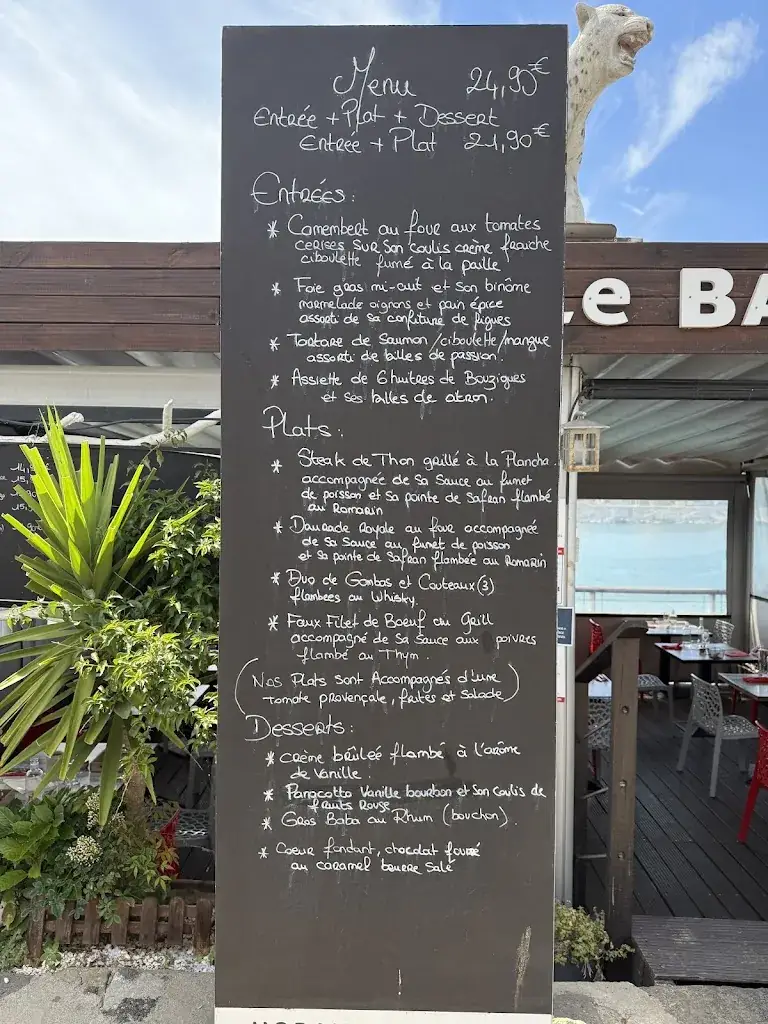 Menu 24,90€
Entrée + Plat + Dessert
Entrée + Plat 21,90€
Entrées :
* Camembert au four aux tomates
cerises sur son coulis crème fraiche
ciboulette fumé à la paille
* Foie gras mi-cuit et son binôme
marmelade oignons et pain épice
assorti de sa confiture de figues
* Tartare de Saumon /ciboulette/mangue
assorti de billes de passion.
* Assiette de 6 huitres de Bouzigues
et ses billes de citron.
Plats :
* Steak de Thon grillé à la Plancha
accompagnée de sa sauce au fumet
de poisson et sa pointe de Safran flambé
au Romarin
* Daurade Royale au four accompagnée
de sa sauce au fumet de poisson
et sa pointe de Safran flambée au Romarin
* Duo de Gambas et Couteaux (3)
flambées au Whisky.
* Faux Filet de Boeuf au Grill
accompagné de sa sauce aux poivres
flambé au Thym.
(Nos Plats sont Accompagnés d'une
tomate provençale, frites et Salade)
Desserts :
* crème brûlée flambé à l'arôme
de Vanille.
* Panacotta Vanille bourbon et son coulis de
fruits Rouge
* Gros Baba au Rhum (bouchon).
* Coeur fondant, chocolat fourré
au caramel beurre Salé
Le BA